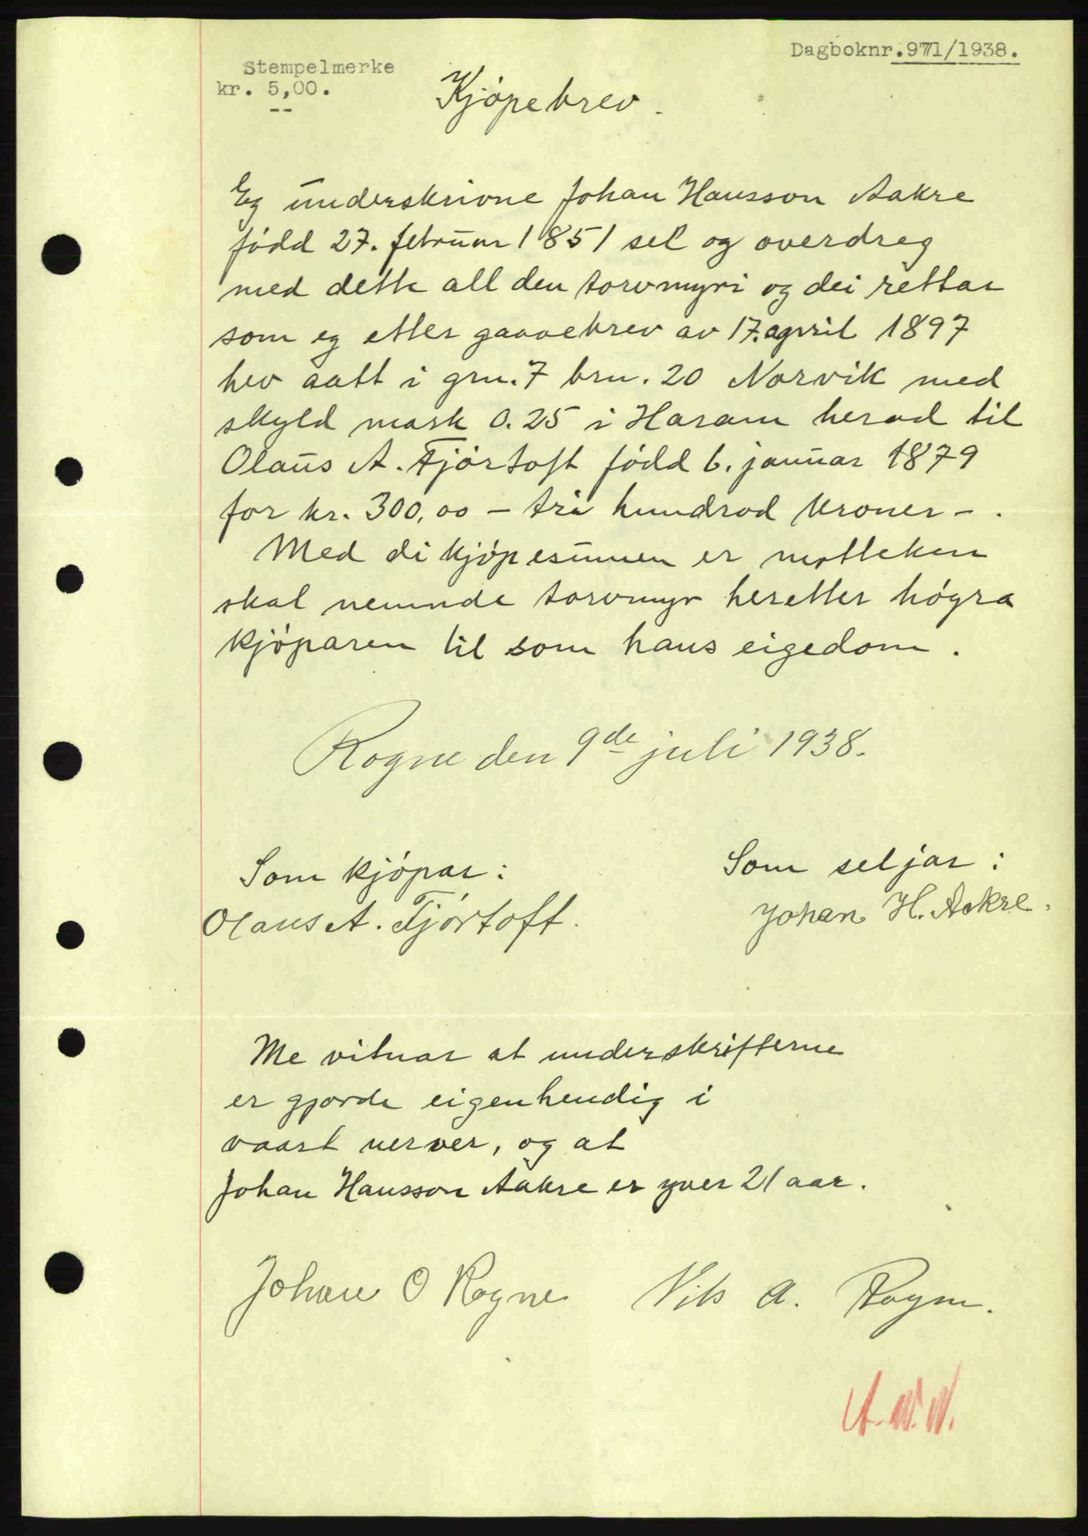 Dagboknr.971/1938.
Stempelmerke
kr. 5,00.
--
Kjöpebrev.
Eg underskrivne Johan Hansson Aakre
född 27. februar 1851 sel og overdreg
med dette all den torvmyri og dei rettar
som eg etter gaavebrev av 17. april 1897
hev aatt i grn. 7 brn. 20 Norvik med
skyld mark 0.25 i Haram herad til
Olaus A. Fjörtoft född 6. januar 1879
for kr. 300,00 - tri hundrad kroner - .
Med di kjöpesumen er motteken
skal nemnde torvmyr heretter högra
kjöparen til som hans eigedom.
Rogne den 9de juli 1938.
Som kjöpar:
Olaus A. Fjörtoft.
Som seljar:
Johan H. Aakre.
Me vitnar at underskrifterne
er gjorde eigenhendig i
vaart nerver, og at
Johan Hansson Aakre er yver 21 aar.
Johan O Rogne
Nils A. Rogne.